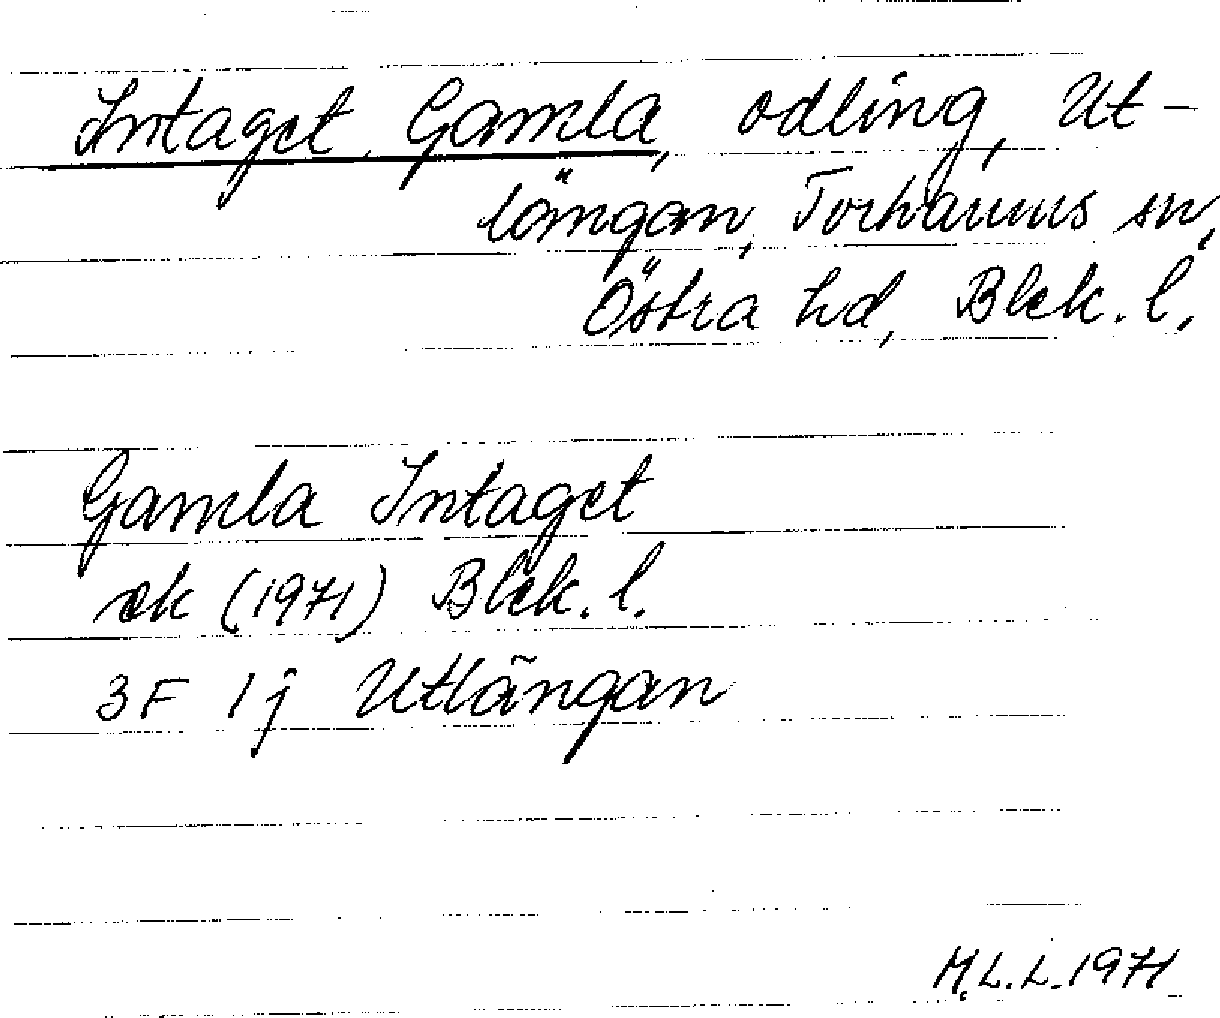 Intaget, Gamla, odling, Ut-
längan, Torhamns sn,
Östra hd, Blek. l.
Gamla Intaget
ek (1971) Blek. l.
3F 1j Utlängan
M.L.L. 1971